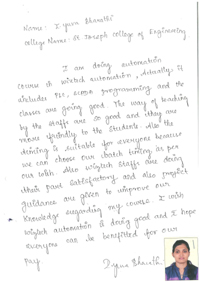 Name : I. yamu Bharathi
College Name : St. Joseph College of Engineering
I am doing automation
course in wiztech automation, Actually, it
includes PLC, SCADA programming and the
classes are going good. The way of teaching
by the staffs are so good and they are
more friendly to the students. Also the
timing is suitable for everyone because
we can choose our batch timing as per
our wish. Also wiztech staffs are doing
their part satisfactory. And also project
guidance are given to improve our
knowledge regarding my course. I wish
wiztech automation is doing good and I hope
everyone can be benefitted for our
pay.
Bharathi